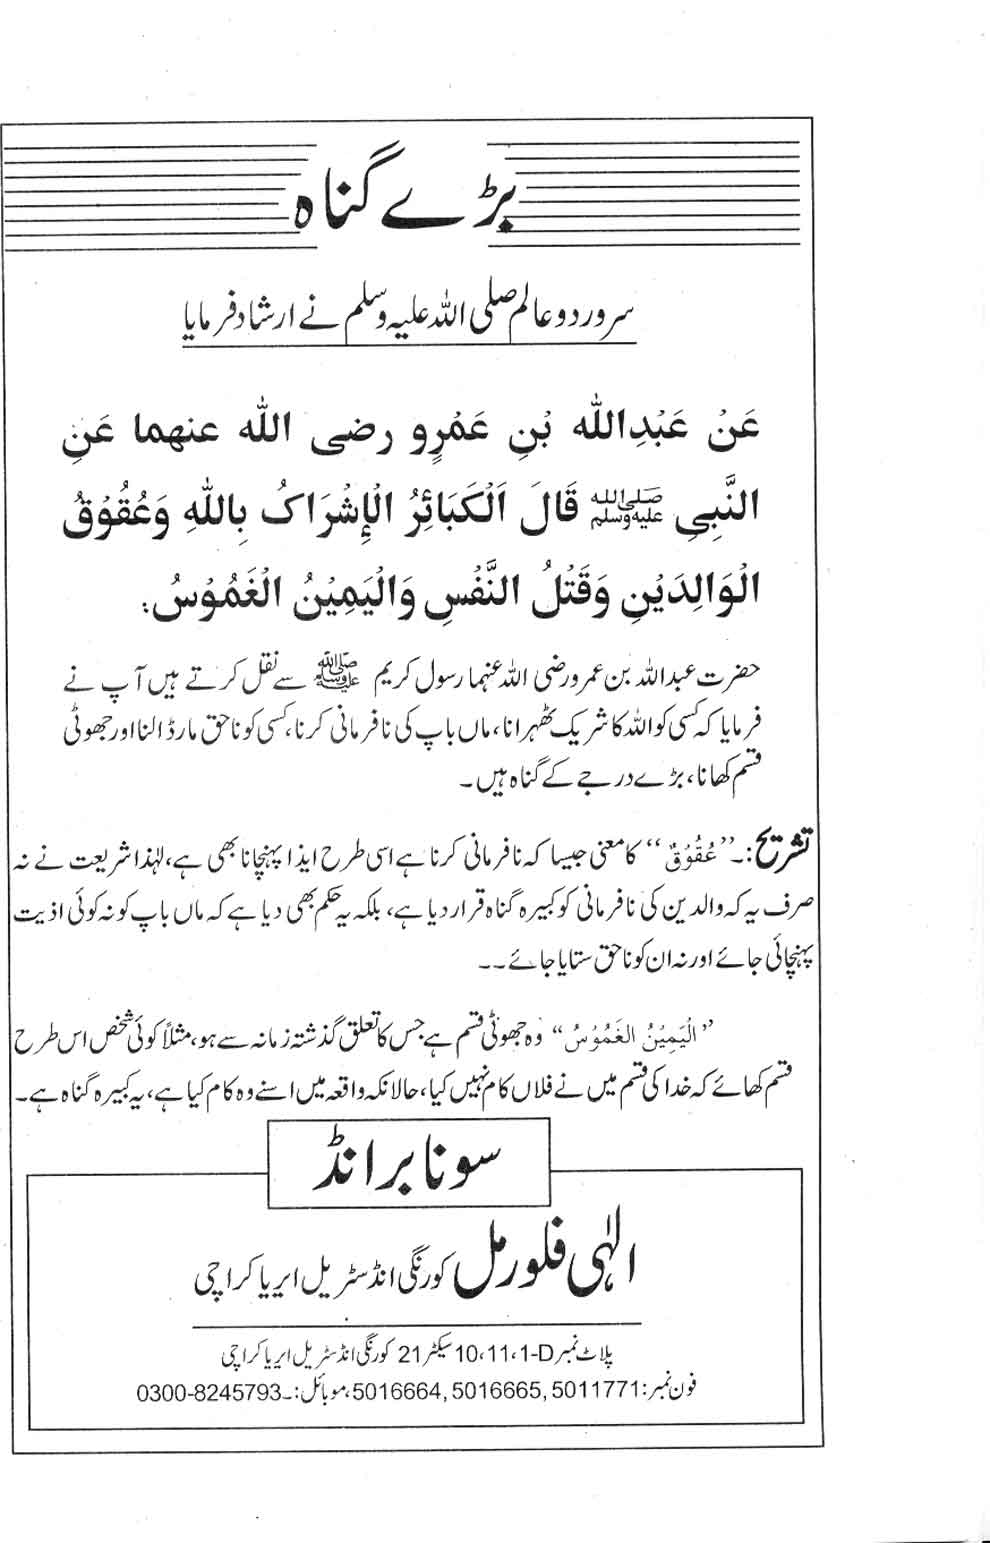 بڑے گناہ
سرور دو عالم صلی اللہ علیہ وسلم نے ارشاد فرمایا
عَنْ عَبْدِاللّٰه بْنِ عَمْرٍو رضی الله عنهما عَنِ
النَّبِیِ ﷺ قَالَ اَلْكَبَائِرُ الْإِشْرَاكُ بِاللّٰهِ وَعُقُوْقُ
الْوَالِدَيْنِ وَقَتْلُ النَّفْسِ وَالْيَمِيْنُ الْغَمُوْسُ؛
حضرت عبداللہ بن عمرو رضی اللہ عنہما رسول کریم ﷺ سے نقل کرتے ہیں آپ نے
فرمایا کہ کسی کو اللہ کا شریک ٹھہرانا، ماں باپ کی نافرمانی کرنا، کسی کو ناحق مار ڈالنا اور جھوٹی
قسم کھانا، بڑے درجے کے گناہ ہیں۔
تشریح:۔ ”عُقُوْقٌ“ کا معنی جیسا کہ نافرمانی کرنا ہے اسی طرح ایذا پہنچانا بھی ہے، لہٰذا شریعت نے نہ
صرف یہ کہ والدین کی نافرمانی کو کبیرہ گناہ قرار دیا ہے، بلکہ یہ حکم بھی دیا ہے کہ ماں باپ کو نہ کوئی اذیت
پہنچائی جائے اور نہ ان کو ناحق ستایا جائے۔۔
”الْيَمِيْنُ الْغَمُوْسُ“ وہ جھوٹی قسم ہے جس کا تعلق گذشتہ زمانہ سے ہو، مثلاً کوئی شخص اس طرح
قسم کھائے کہ خدا کی قسم میں نے فلاں کام نہیں کیا، حالانکہ واقعہ میں اسنے وہ کام کیا ہے، یہ کبیرہ گناہ ہے۔
سونا برانڈ
الٰہی فلور مل کورنگی انڈسٹریل ایریا کراچی
پلاٹ نمبر 1-D، 11، 10 سیکٹر 21 کورنگی انڈسٹریل ایریا کراچی
فون نمبر: 5011771, 5016665, 5016664، موبائل:۔ 0300-8245793